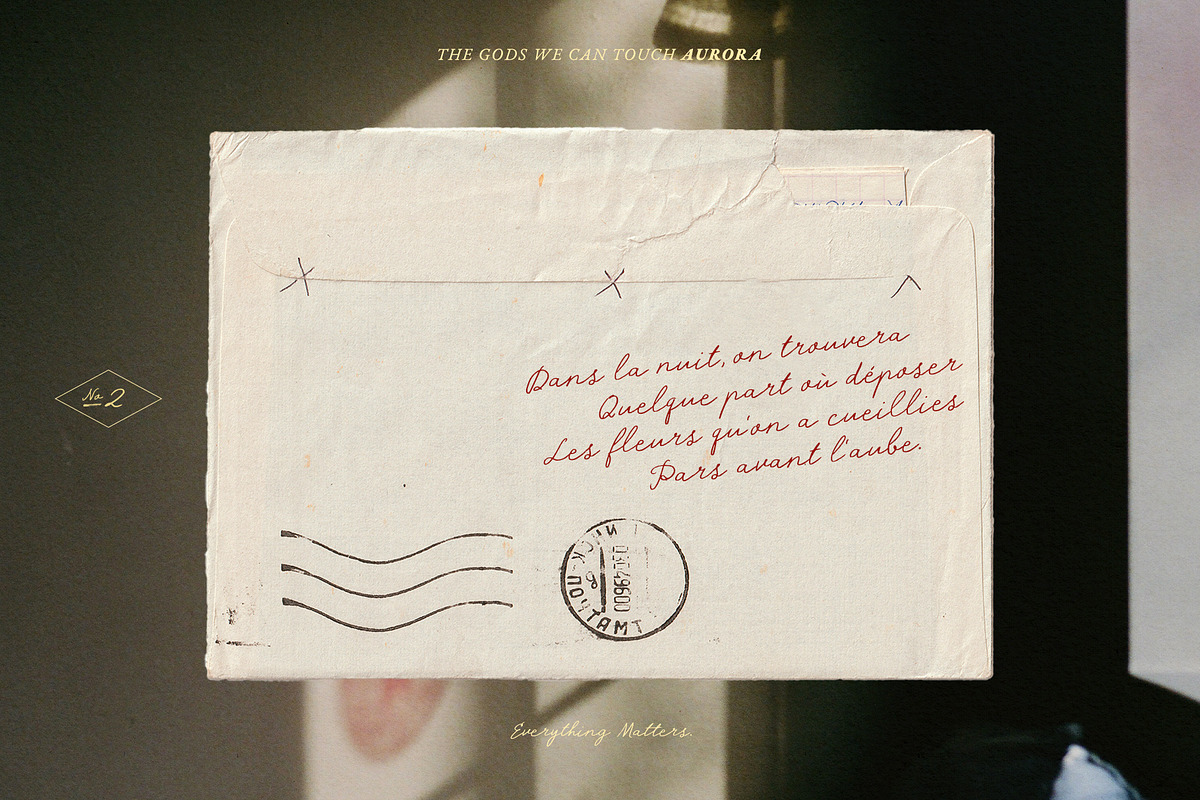 THE GODS WE CAN TOUCH AURORA
Dans la nuit, on trouvera
Quelque part où déposer
Les fleurs qu'on a cueillies
Pars avant l'aube.
No 2
ПОЧТАМТ
Everything Matters.